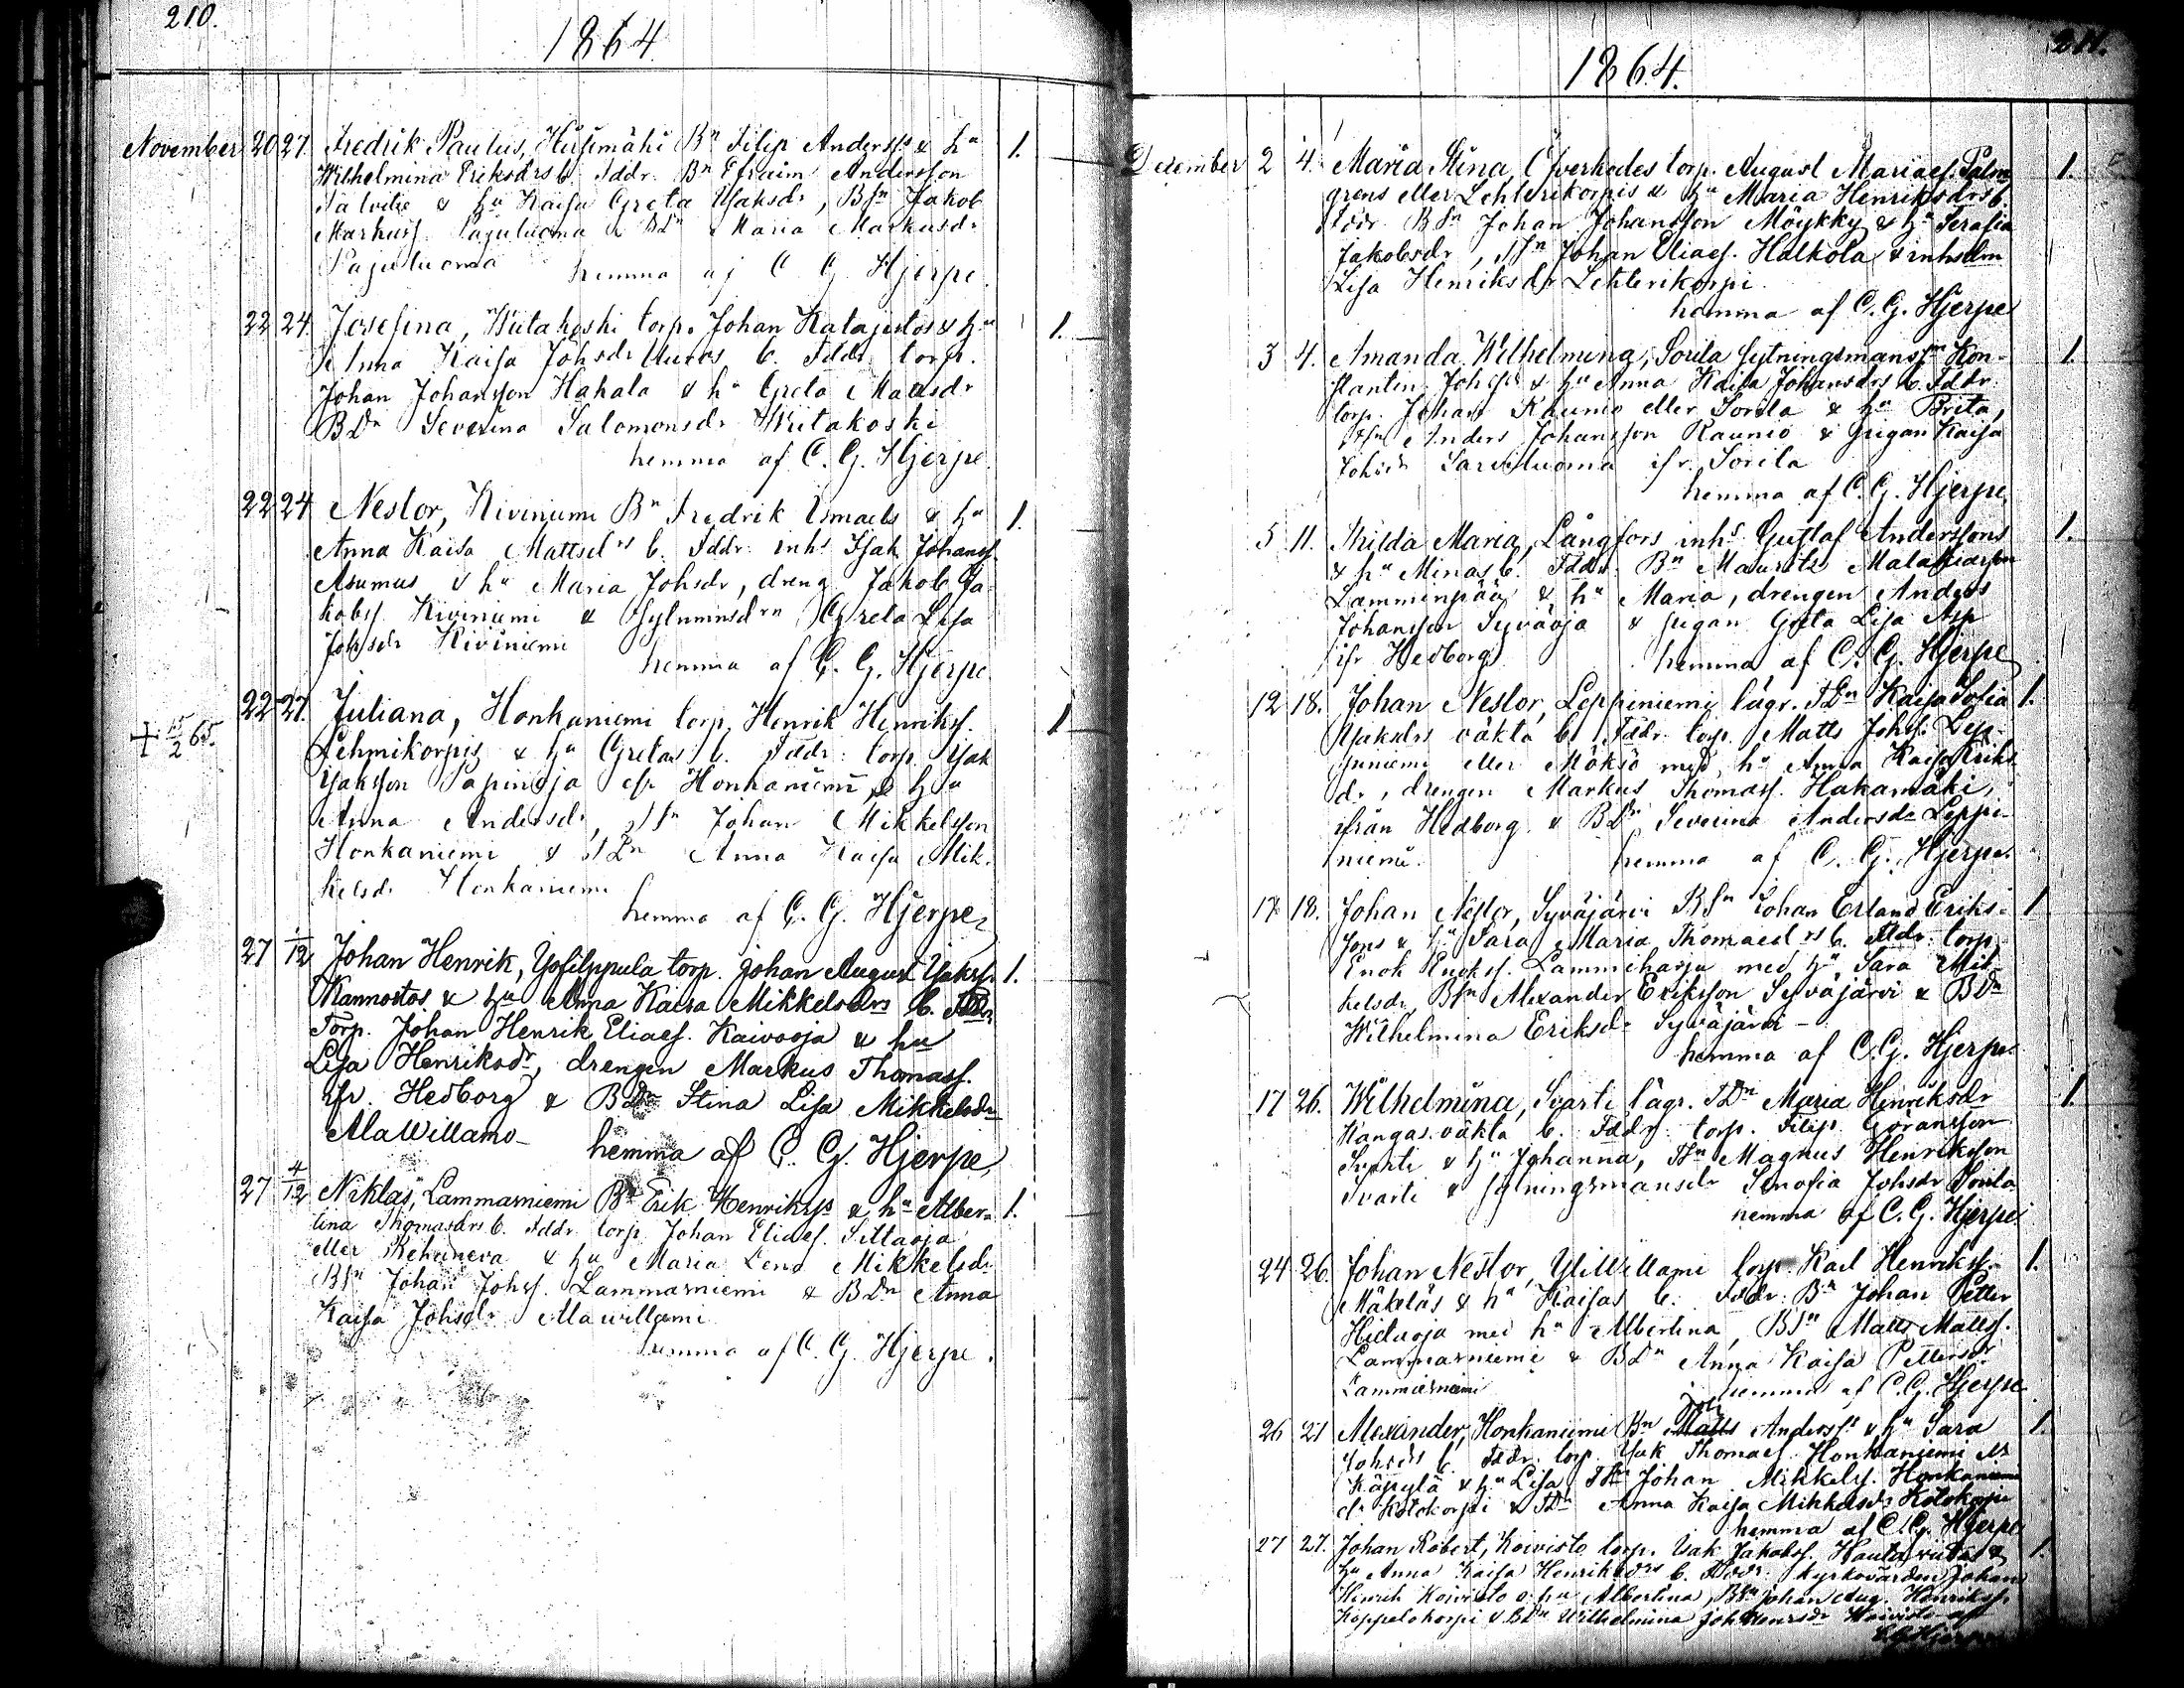 210.
1864
November 20 27. Fredrik Paulus, Hirsimäki Bn Filip Anderss & hu 1.
Wilhelmina Eriksdrs b. Fddr. Bn Efraim Andersson
Talvitie & hu Kaisa Greta Isaksdr, BSn Jakob
Markuss. Pajuluoma & BDn Maria Markusdr
Pajuluoma hemma af C G Hjerpe.
22 24. Josefina, Wiitakoski torp. Johan Katajistos & hu 1.
Anna Kaisa Johsdr b. Fddr. torp.
Johan Johansson Hakala & hu Greta Matsdr
BDn Severina Salomonsdr Wiitakoski
hemma af C. G. Hjerpe.
22 24 Nestor, Kiviniemi Bn Fredrik Ismaels & hu 1.
Anna Kaisa Mattsdrs b. Fddr. inhs Isak Johanss.
Asumus & hu Maria Johsdr, dreng Jakob Ja-
kobss. Kiviniemi & Greta Lisa
Johsdr Kiviniemi
hemma af C. G. Hjerpe.
22 27. Juliana, Honkaniemi torp. Henrik Henrikss. 1
+ 15/2 65.
Lehmikorpis & hu Gretas b. Fddr. torp. Isak
Isaksson Papinoja efr Honkaniemi, & hu
Anna Andersdr, Johan Mikkelsson
Honkaniemi & Anna Kaisa Mik-
kelsdr Honkaniemi
hemma af C. G. Hjerpe
27 1/12 Johan Henrik, Yofilppula torp. Johan August Isakss. 1.
Kannostos & hu Anna Kaisa Mikkelsdrs b. Fddr
Torp. Johan Henrik Eliaes. Kaivooja & hu
Lisa Henriksdr, drengen Markus Thomass.
ifr. Hedborg & BDr Stina Lisa Mikkelsdr
Alawillamo
hemma af C. G. Hjerpe
27 4/12 Niklas, Lammasniemi Bn Erik Henrikss & hu Alber- 1.
tina Thomasdrs b. Fddr. torp. Johan Eliaes. Siltaoja
eller Rehuneva & hu Maria Lena Mikkelsdr
BSn Johan Johss. Lammasniemi & BDn Anna
Kaisa Johsdr Alawillami
hemma af C. G. Hjerpe.
211.
1864.
December 2 4. Maria Stina, Öfverkodes torp. August Mariaes. Palm- 1.
grens eller Lehterikorpis & hu Maria Henriksdrs b.
Fddr BSn Johan Johansson Möykky & hu Serafia
Jakobsdr, Johan Eliaes. Halkola & inhsdrn
Lisa Henriksdr Lehterikorpi.
hemma af C. G. Hjerpe
3 4. Amanda Wilhelmina, Sorila Kon- 1.
stantin Johss & hu Anna Kaisa Johansdrs b. Fddr.
torp. Johan Raunio eller Sorila & hu Brita,
Anders Johansson Raunio & pigan Kaisa
Johsdr Sarviluoma ifr. Sorila
hemma af C. G. Hjerpe
5 11. Hilda Maria, Långfors inhs Gustaf Anderssons 1.
& hu Minas b. Fddr. Bn Mauritz Malakiasson
Lamminpää & hu Maria, drengen Anders
Johansson Syväoja & pigan Greta Lisa Asp
ifr Hedborg. hemma af C. G. Hjerpe
12 18. Johan Nestor, Leppiniemi lägr. TDn Kaisa Sofia 1.
Isaksdrs oäkta b. Fddr. torp. Matts Johss. Lep-
piniemi eller Möksö med hu Anna Kaisa Eriks-
dr, drengen Markus Thomass. Hakamäki,
ifrån Hedborg & BDr Severina Andersdr Leppi-
niemi. hemma af C. G. Hjerpe.
17 18. Johan Nestor, Syväjärvi BSn Johan Erland Eriks- 1
sons & hu Sara Maria Thomaedrs b. Fddr. torp.
Enok Enokss. Lammiharju med hu Sara Mik-
kelsdr, BSn Alexander Eriksson Syväjärvi & BDn
Wilhelmina Eriksdr Syväjärvi –
hemma af C. G. Hjerpe
17 26. Wilhelmina, Svarti lägr. TDn Maria Henriksdr 1.
Kangas oäkta b. Fddr. torp. Filip Göransson
Svarti & hu Johanna, TSn Magnus Henriksson
Svarti & Serafia Johsdr Sorila
hemma af C. G. Hjerpe.
24 26. Johan Nestor, Yliwillami torp. Karl Henrikss. 1.
Mäkeläs & hu Kaisas b. Fddr. Bn Johan Petter
Hietaoja med hu Albertina, BSn Matts Matts.
Lammasniemi & BDn Anna Kaisa Pettersdr
Lammasniemi hemma af C. G. Hjerpe
26 27 Alexander, Honkaniemi Bn Matts Anderss & hu Sara 1.
Johsdrs b. Fddr. torp. Isak Thomaes. Honkaniemi
Käpylä & hu Lisa, Johan Mikkels. Honkaniemi
Kotokorpi & TDn Anna Kaisa Mikkelsdr Kotokorpi
hemma af C. G. Hjerpe
27 27. Johan Robert, Koivisto torp. Isak Jakobss. Hautaviitas & 1.
hu Anna Kaisa Henriksdrs b. Fddr. kyrkovärden Johan
Henrik Koivisto & hu Albertina, BSn Johan Aug. Henrikss.
Koppelokorpi & BDn Wilhelmina Joh Henrsdr Koivisto af
C G Hjerpe